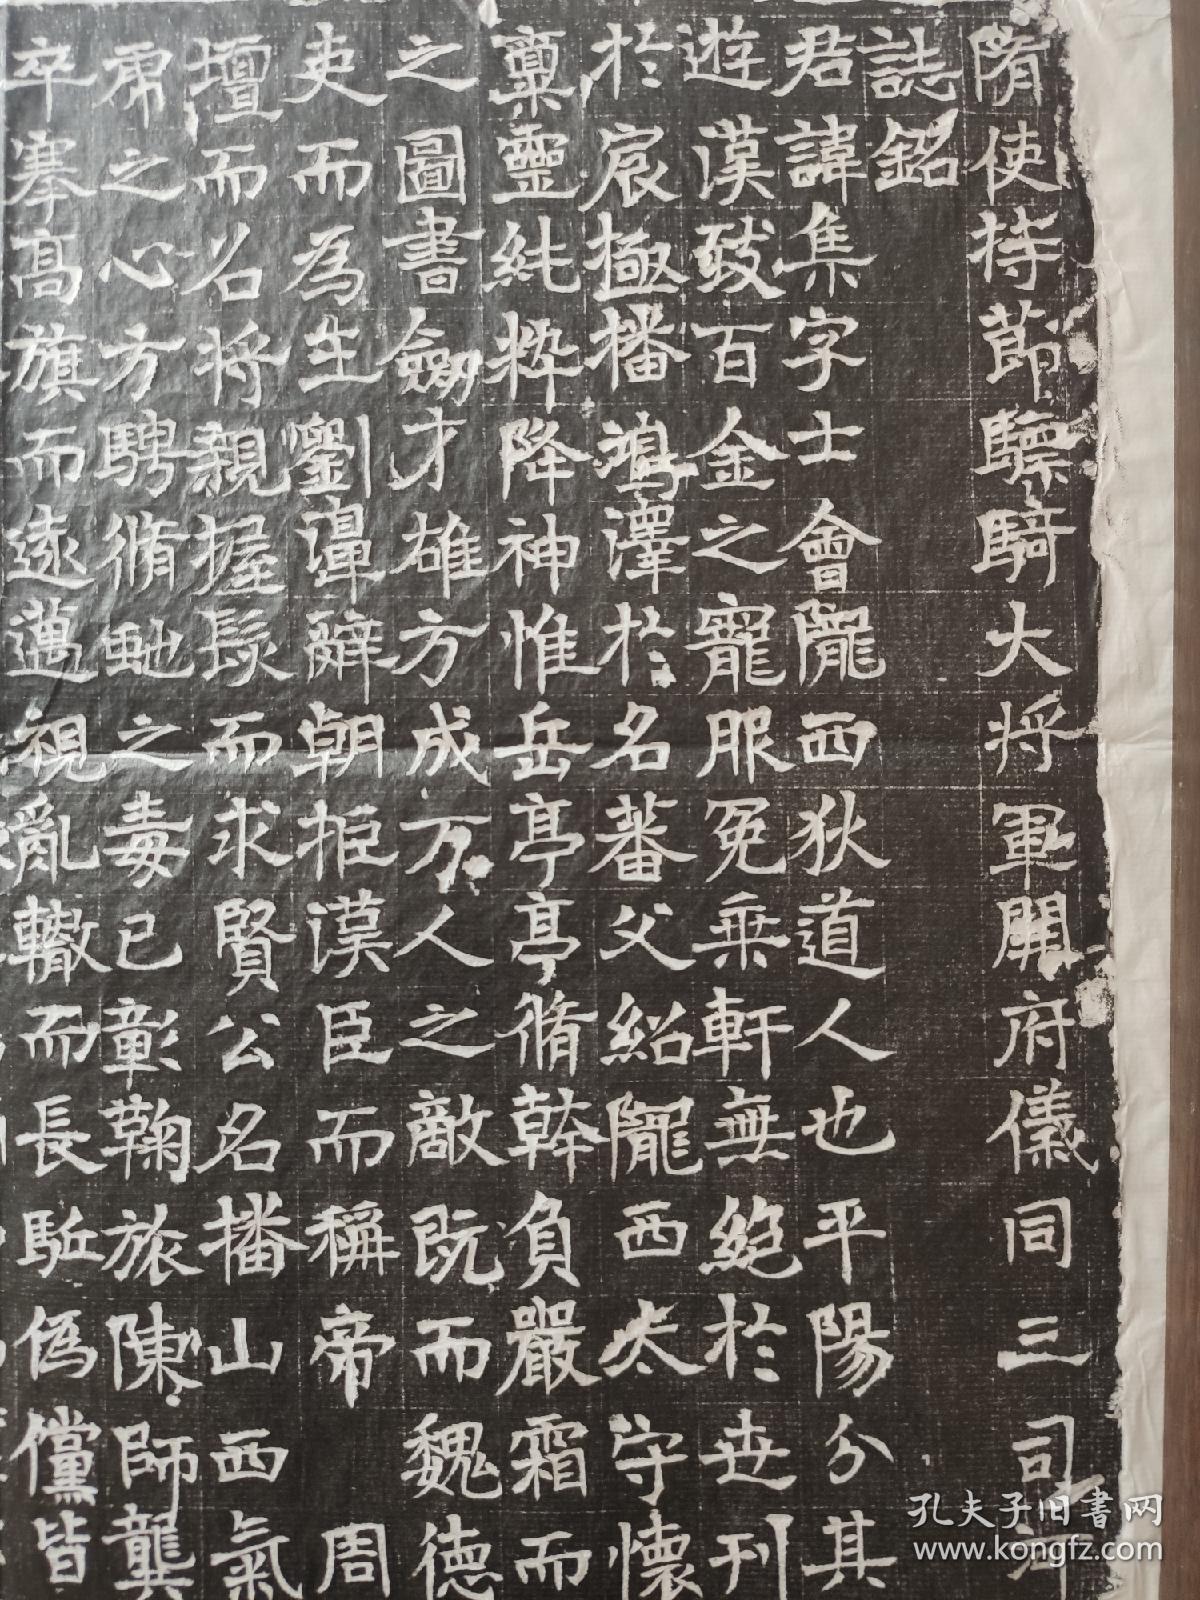 隋使持節驃騎大將軍開府儀同三司
誌銘
君諱集字士會隴西狄道人也平陽分其
遊漢致百金之寵服冕乘軒無絕於世刊
於宸極播鴻澤於名蕃父紹隴西太守懷
稟靈純粹降神惟岳亭亭脩幹負嚴霜而
之圖書劒才雄方成万人之敵既而魏德
吏而為生劉璋辭朝拒漢臣而稱帝周
壇而名將親握髮而求賢公名播山西氣
之心方騁脩虵之毒已彰鞠旅陳師龔
卒搴高旗而遠邁視亂轍而長駈偽儻皆
孔夫子旧書网
www.kongfz.com